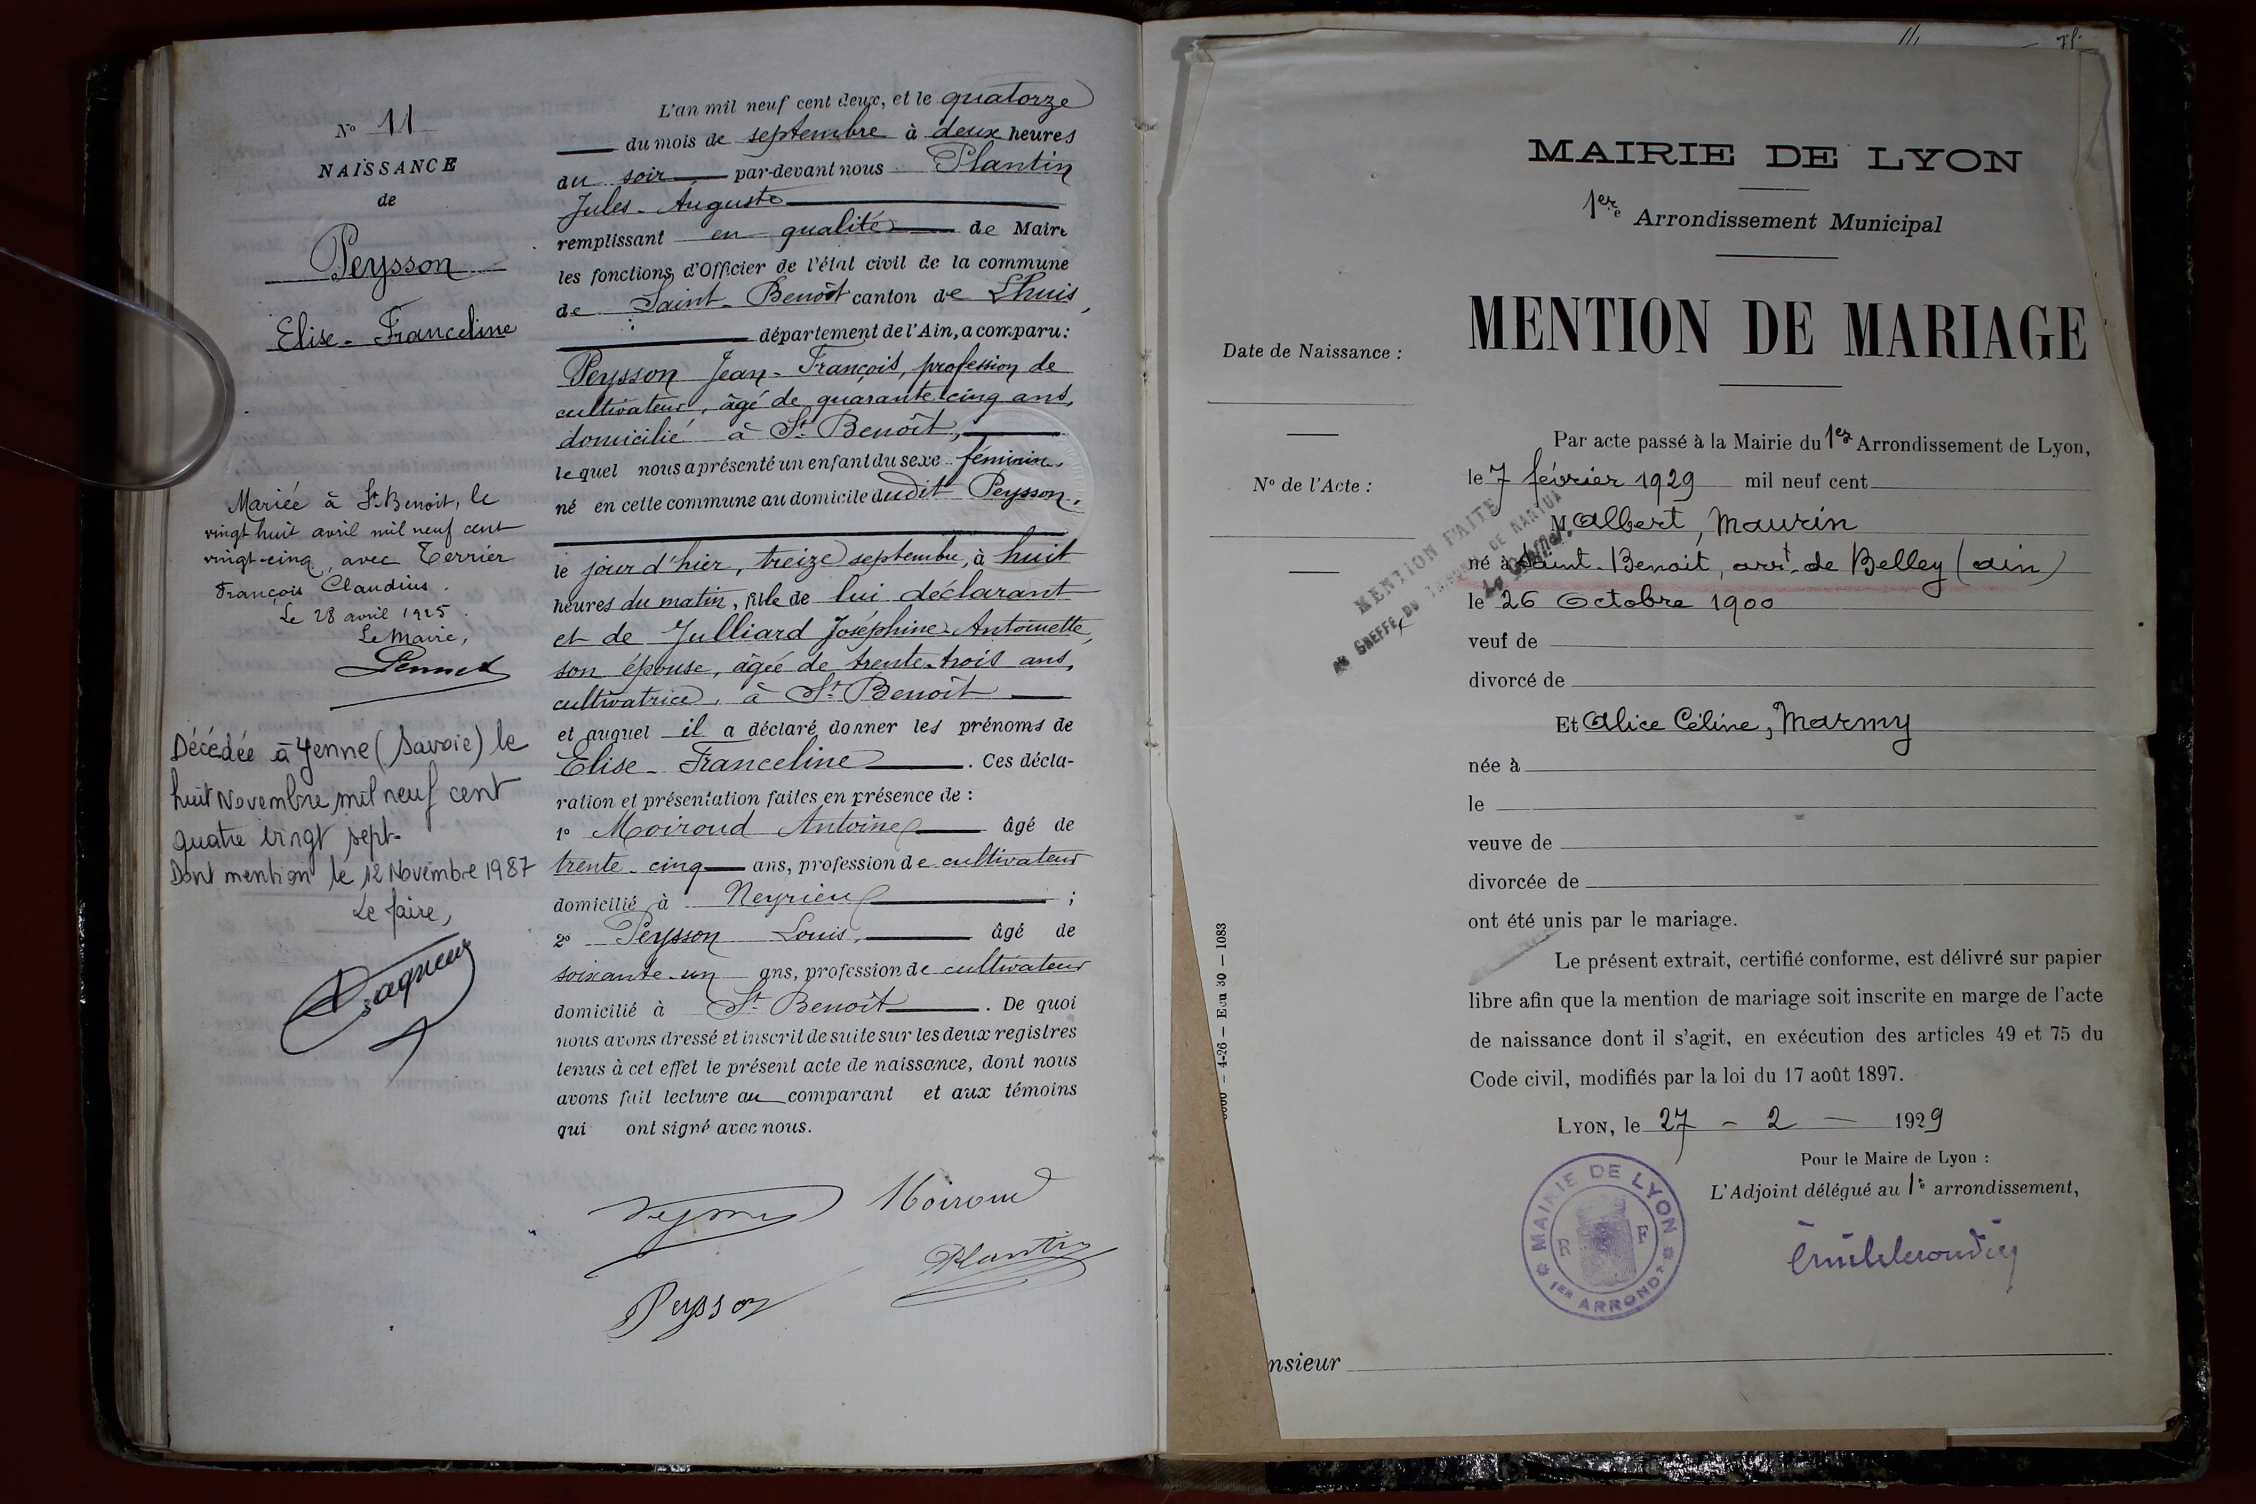 N° 11
NAISSANCE
de
Peysson
Elise - Franceline
Mariée à St Benoit, le
vingt huit avril mil neuf cent
vingt-cinq, avec Terrier
François Claudius.
Le 28 avril 1925.
Le Maire,
Décédée à Yenne (Savoie) le
huit Novembre mil neuf cent
quatre vingt sept.
Dont mention le 12 Novembre 1987
Le Maire,
L'an mil neuf cent deux, et le quatorze
du mois de septembre à deux heures
du soir par-devant nous Plantin
Jules - Auguste
remplissant en qualité de Maire
les fonctions d'Officier de l'état civil de la commune
de Saint - Benoît canton de Lhuis,
département de l'Ain, a comparu:
Peysson Jean - François, profession de
cultivateur, âgé de quarante cinq ans,
domicilié à St Benoît,
lequel nous a présenté un enfant du sexe féminin,
né en cette commune au domicile dudit Peysson,
le jour d'hier, treize septembre, à huit
heures du matin, fille de lui déclarant
et de Julliard Joséphine - Antoinette,
son épouse, âgée de trente-trois ans,
cultivatrice, à St Benoît
et auquel il a déclaré donner les prénoms de
Elise - Franceline. Ces décla-
ration et présentation faites en présence de :
1° Moiroud Antoine âgé de
trente - cinq ans, profession de cultivateur
domicilié à Neyrieu ;
2° Peysson Louis, âgé de
soixante - un ans, profession de cultivateur
domicilié à St Benoît. De quoi
nous avons dressé et inscrit de suite sur les deux registres
tenus à cet effet le présent acte de naissance, dont nous
avons fait lecture au comparant et aux témoins
qui ont signé avec nous.
Moiroud
Plantin
Peysson
MAIRIE DE LYON
1er e Arrondissement Municipal
MENTION DE MARIAGE
Date de Naissance :
N° de l'Acte :
Par acte passé à la Mairie du 1er Arrondissement de Lyon,
le 7 février 1929 mil neuf cent
M Albert, Maurin
né à Saint-Benoit, arrt de Belley (ain)
le 26 Octobre 1900
veuf de
divorcé de
Et Alice Céline, Marmy
née à
le
veuve de
divorcée de
ont été unis par le mariage.
Le présent extrait, certifié conforme, est délivré sur papier
libre afin que la mention de mariage soit inscrite en marge de l'acte
de naissance dont il s'agit, en exécution des articles 49 et 75 du
Code civil, modifiés par la loi du 17 août 1897.
LYON, le 27 - 2 - 1929
Pour le Maire de Lyon :
L'Adjoint délégué au 1e arrondissement,
MENTION FAITE
AU GREFFE DU
Le Greffier
4-26 — Ecu 30 — 1083
MAIRIE DE LYON
R F
1ER ARRONDT
nsieur